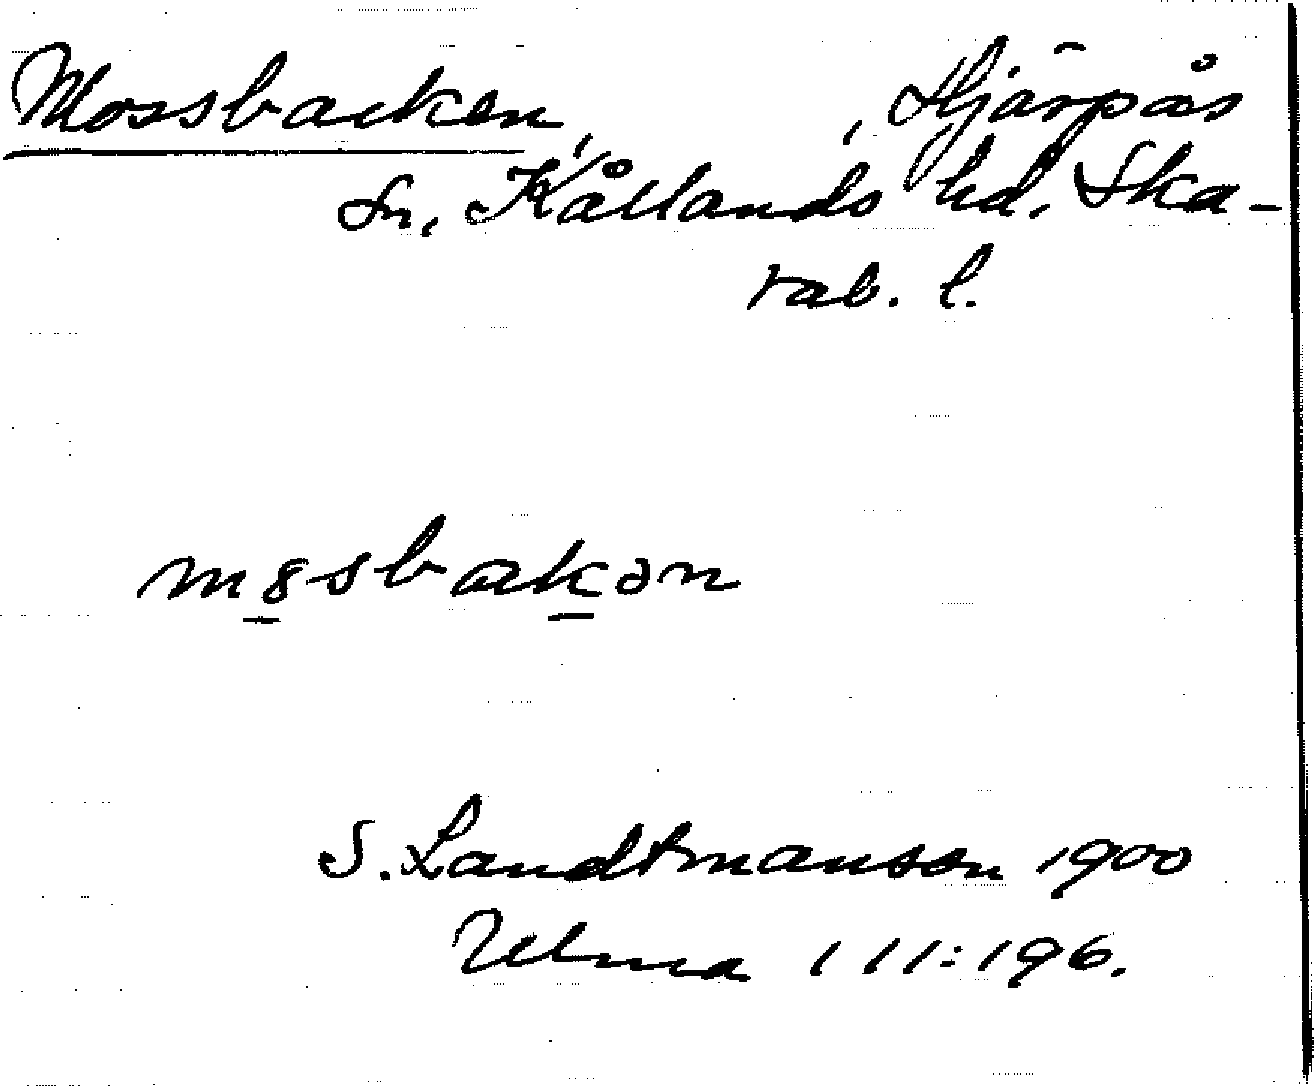 Mossbacken, , Hjärpås
sn, Kållands hd, Ska-
rab. l.
m8sbakən
S. Landtmanson 1900
Ulma 111:196.